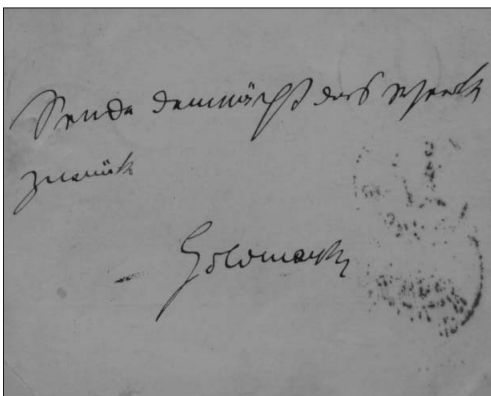 Sende demnächst das Werk
zurück
Goldmark